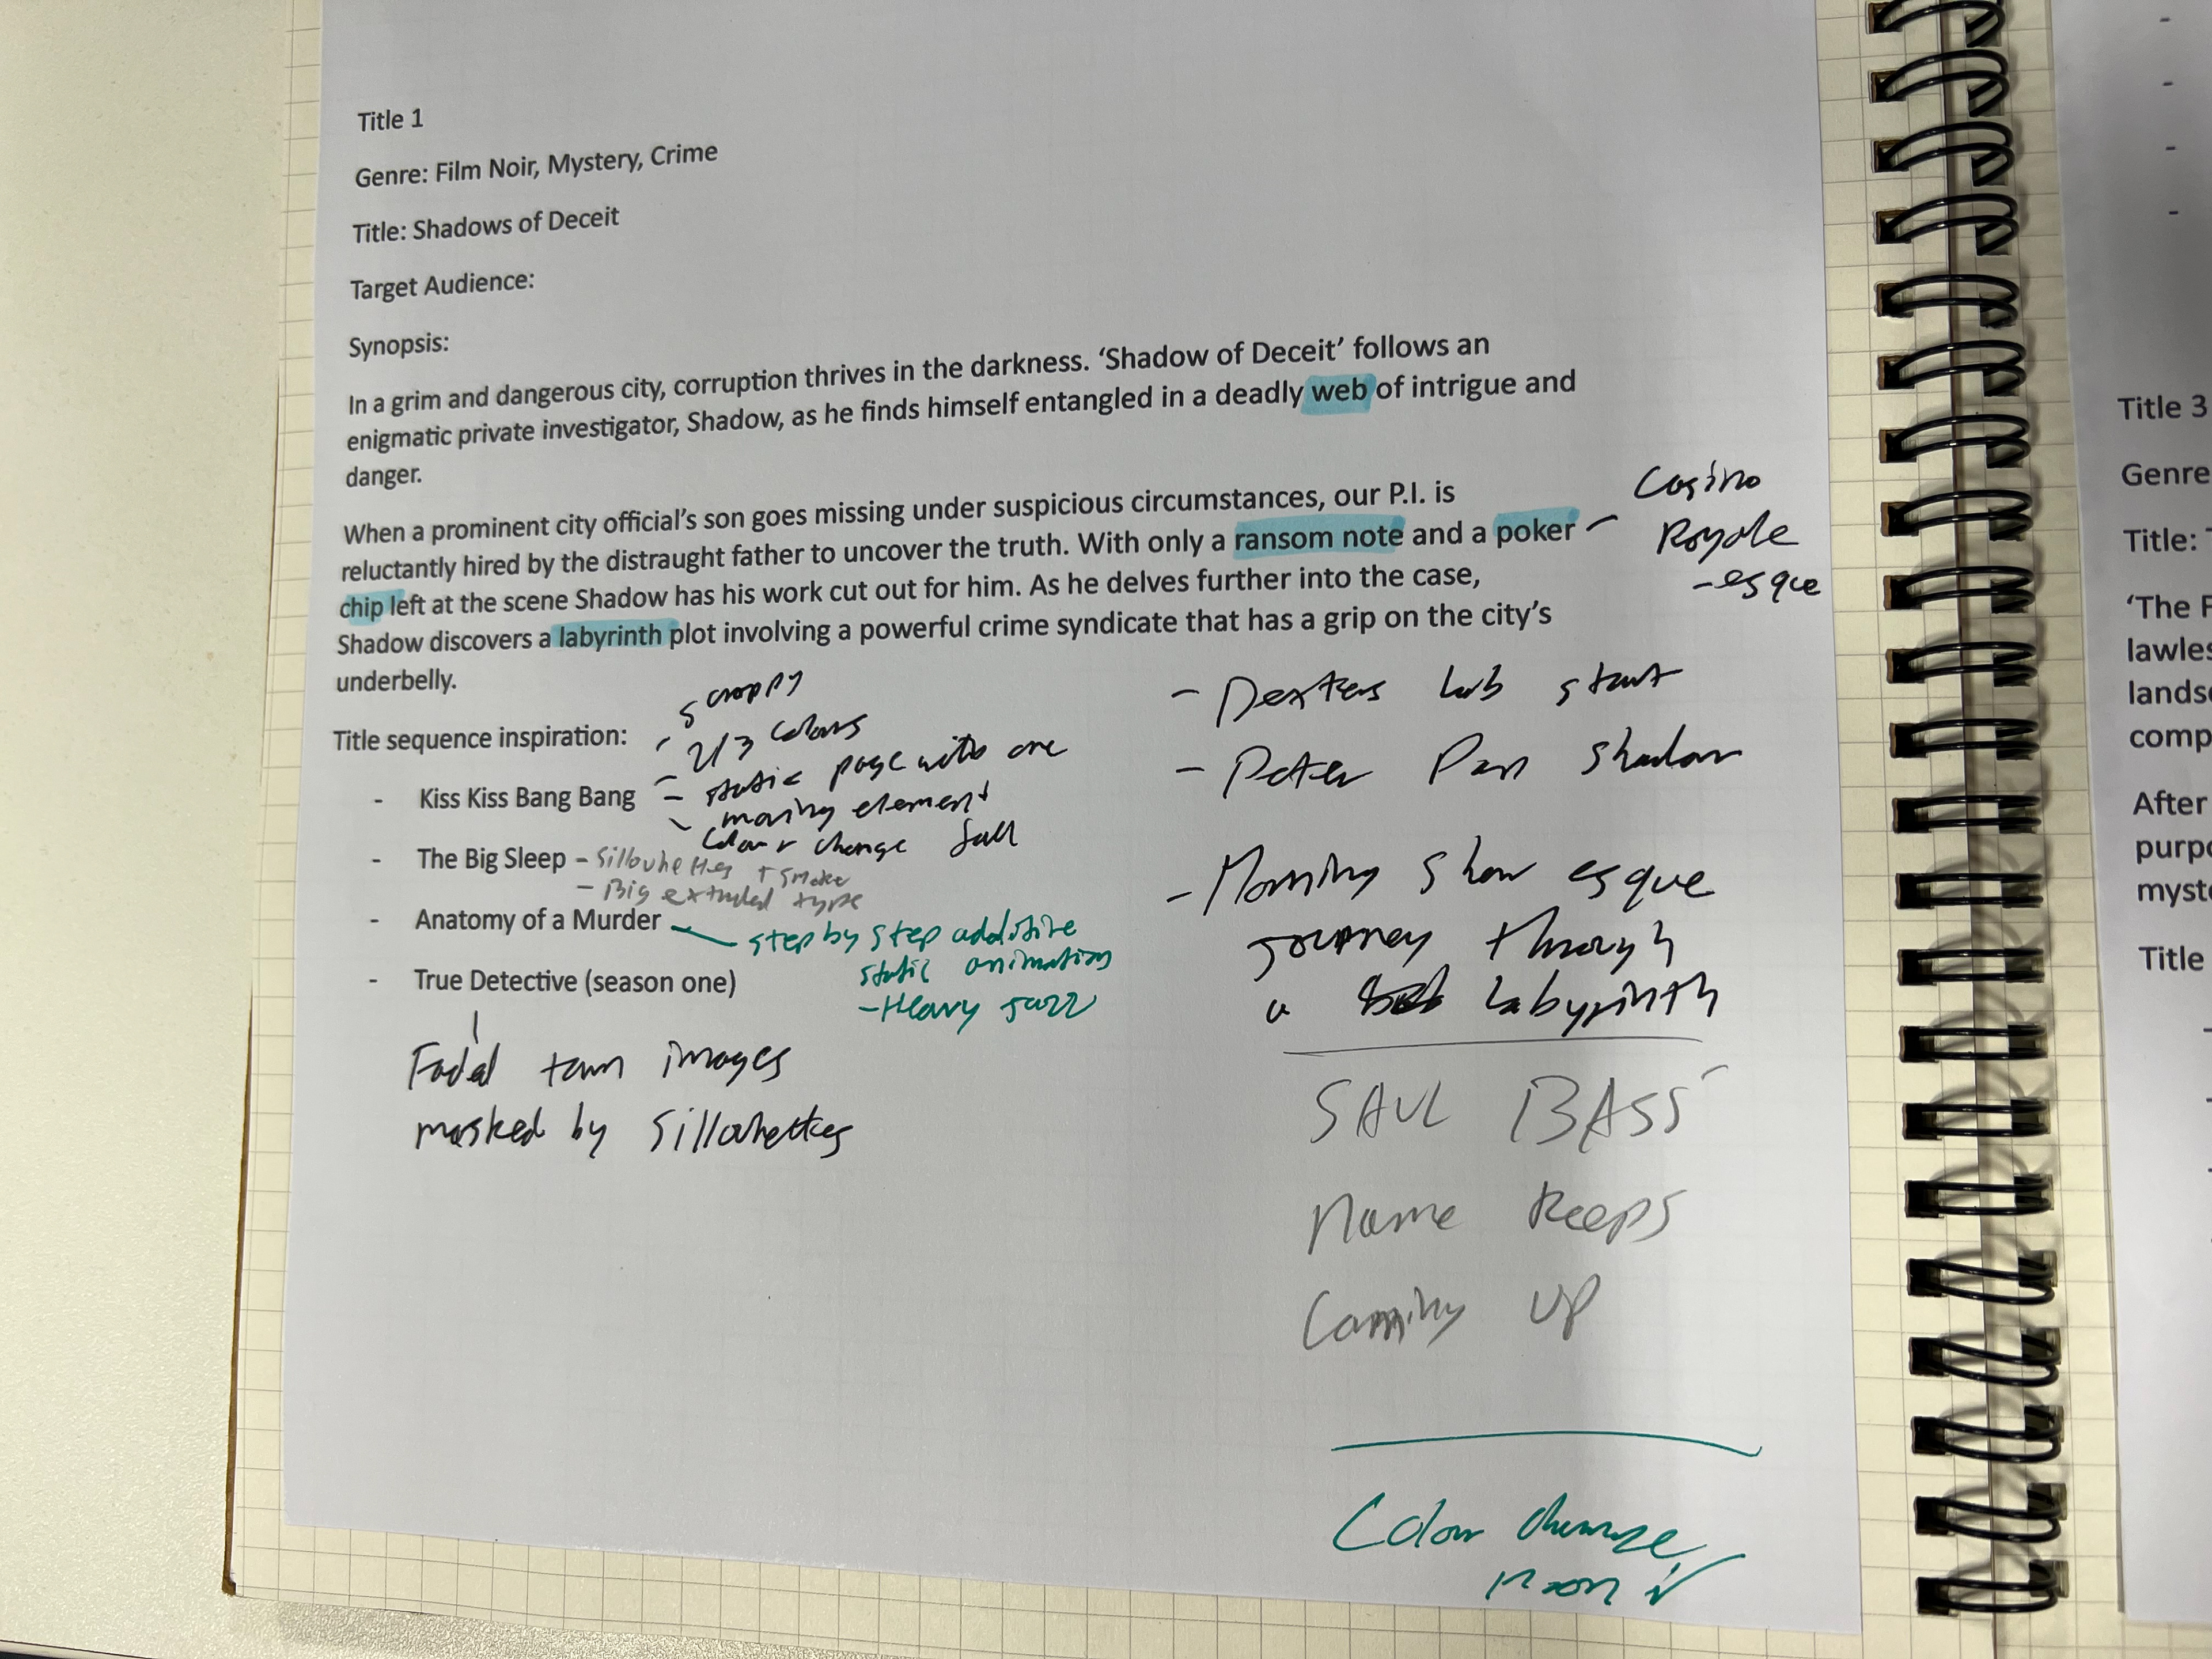 Title 1
Genre: Film Noir, Mystery, Crime
Title: Shadows of Deceit
Target Audience:
Synopsis:
In a grim and dangerous city, corruption thrives in the darkness. ‘Shadow of Deceit’ follows an
enigmatic private investigator, Shadow, as he finds himself entangled in a deadly web of intrigue and
danger.
When a prominent city official’s son goes missing under suspicious circumstances, our P.I. is
reluctantly hired by the distraught father to uncover the truth. With only a ransom note and a poker
chip left at the scene Shadow has his work cut out for him. As he delves further into the case,
Shadow discovers a labyrinth plot involving a powerful crime syndicate that has a grip on the city’s
underbelly.
– Casino
Royale
-esque
Title sequence inspiration:
- Kiss Kiss Bang Bang
- 2/3 colours
- static page with one
moving element
- colour change
- The Big Sleep - Sillouhettes + smoke
- Big extruded type
- Anatomy of a Murder
step by step additive
static animation
- Heavy jazz
- True Detective (season one)
Faded images
masked by Sillouhettes
- Dexters lab start
- Peter Pan shadow
- Morning show esque
journey through
a labyrinth
SAUL BASS
name keeps
Comming up
Colour change
Title 3
Genre
Title:
‘The F
After
Title